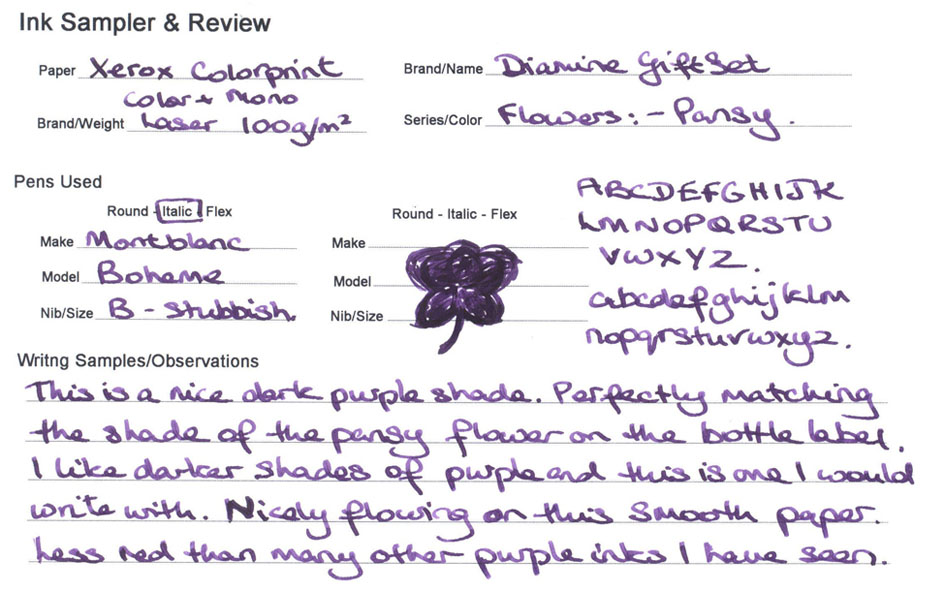 Ink Sampler & Review
Paper Xerox Colorprint
Color + Mono
Brand/Weight Laser 100g/m²
Brand/Name Diamine Gift Set
Series/Color Flowers:- Pansy.
Pens Used
Round - Italic - Flex
Make Montblanc
Model Boheme
Nib/Size B - Stubbish.
Round - Italic - Flex
Make
Model
Nib/Size
ABCDEFGHIJK
LMNOPQRSTU
VWXYZ.
abcdefghijklm
nopqrstuvwxyz.
Writng Samples/Observations
This is a nice dark purple shade. Perfectly matching
the shade of the pansy flower on the bottle label.
I like darker shades of purple and this is one I would
write with. Nicely flowing on this smooth paper.
Less red than many other purple inks I have seen.